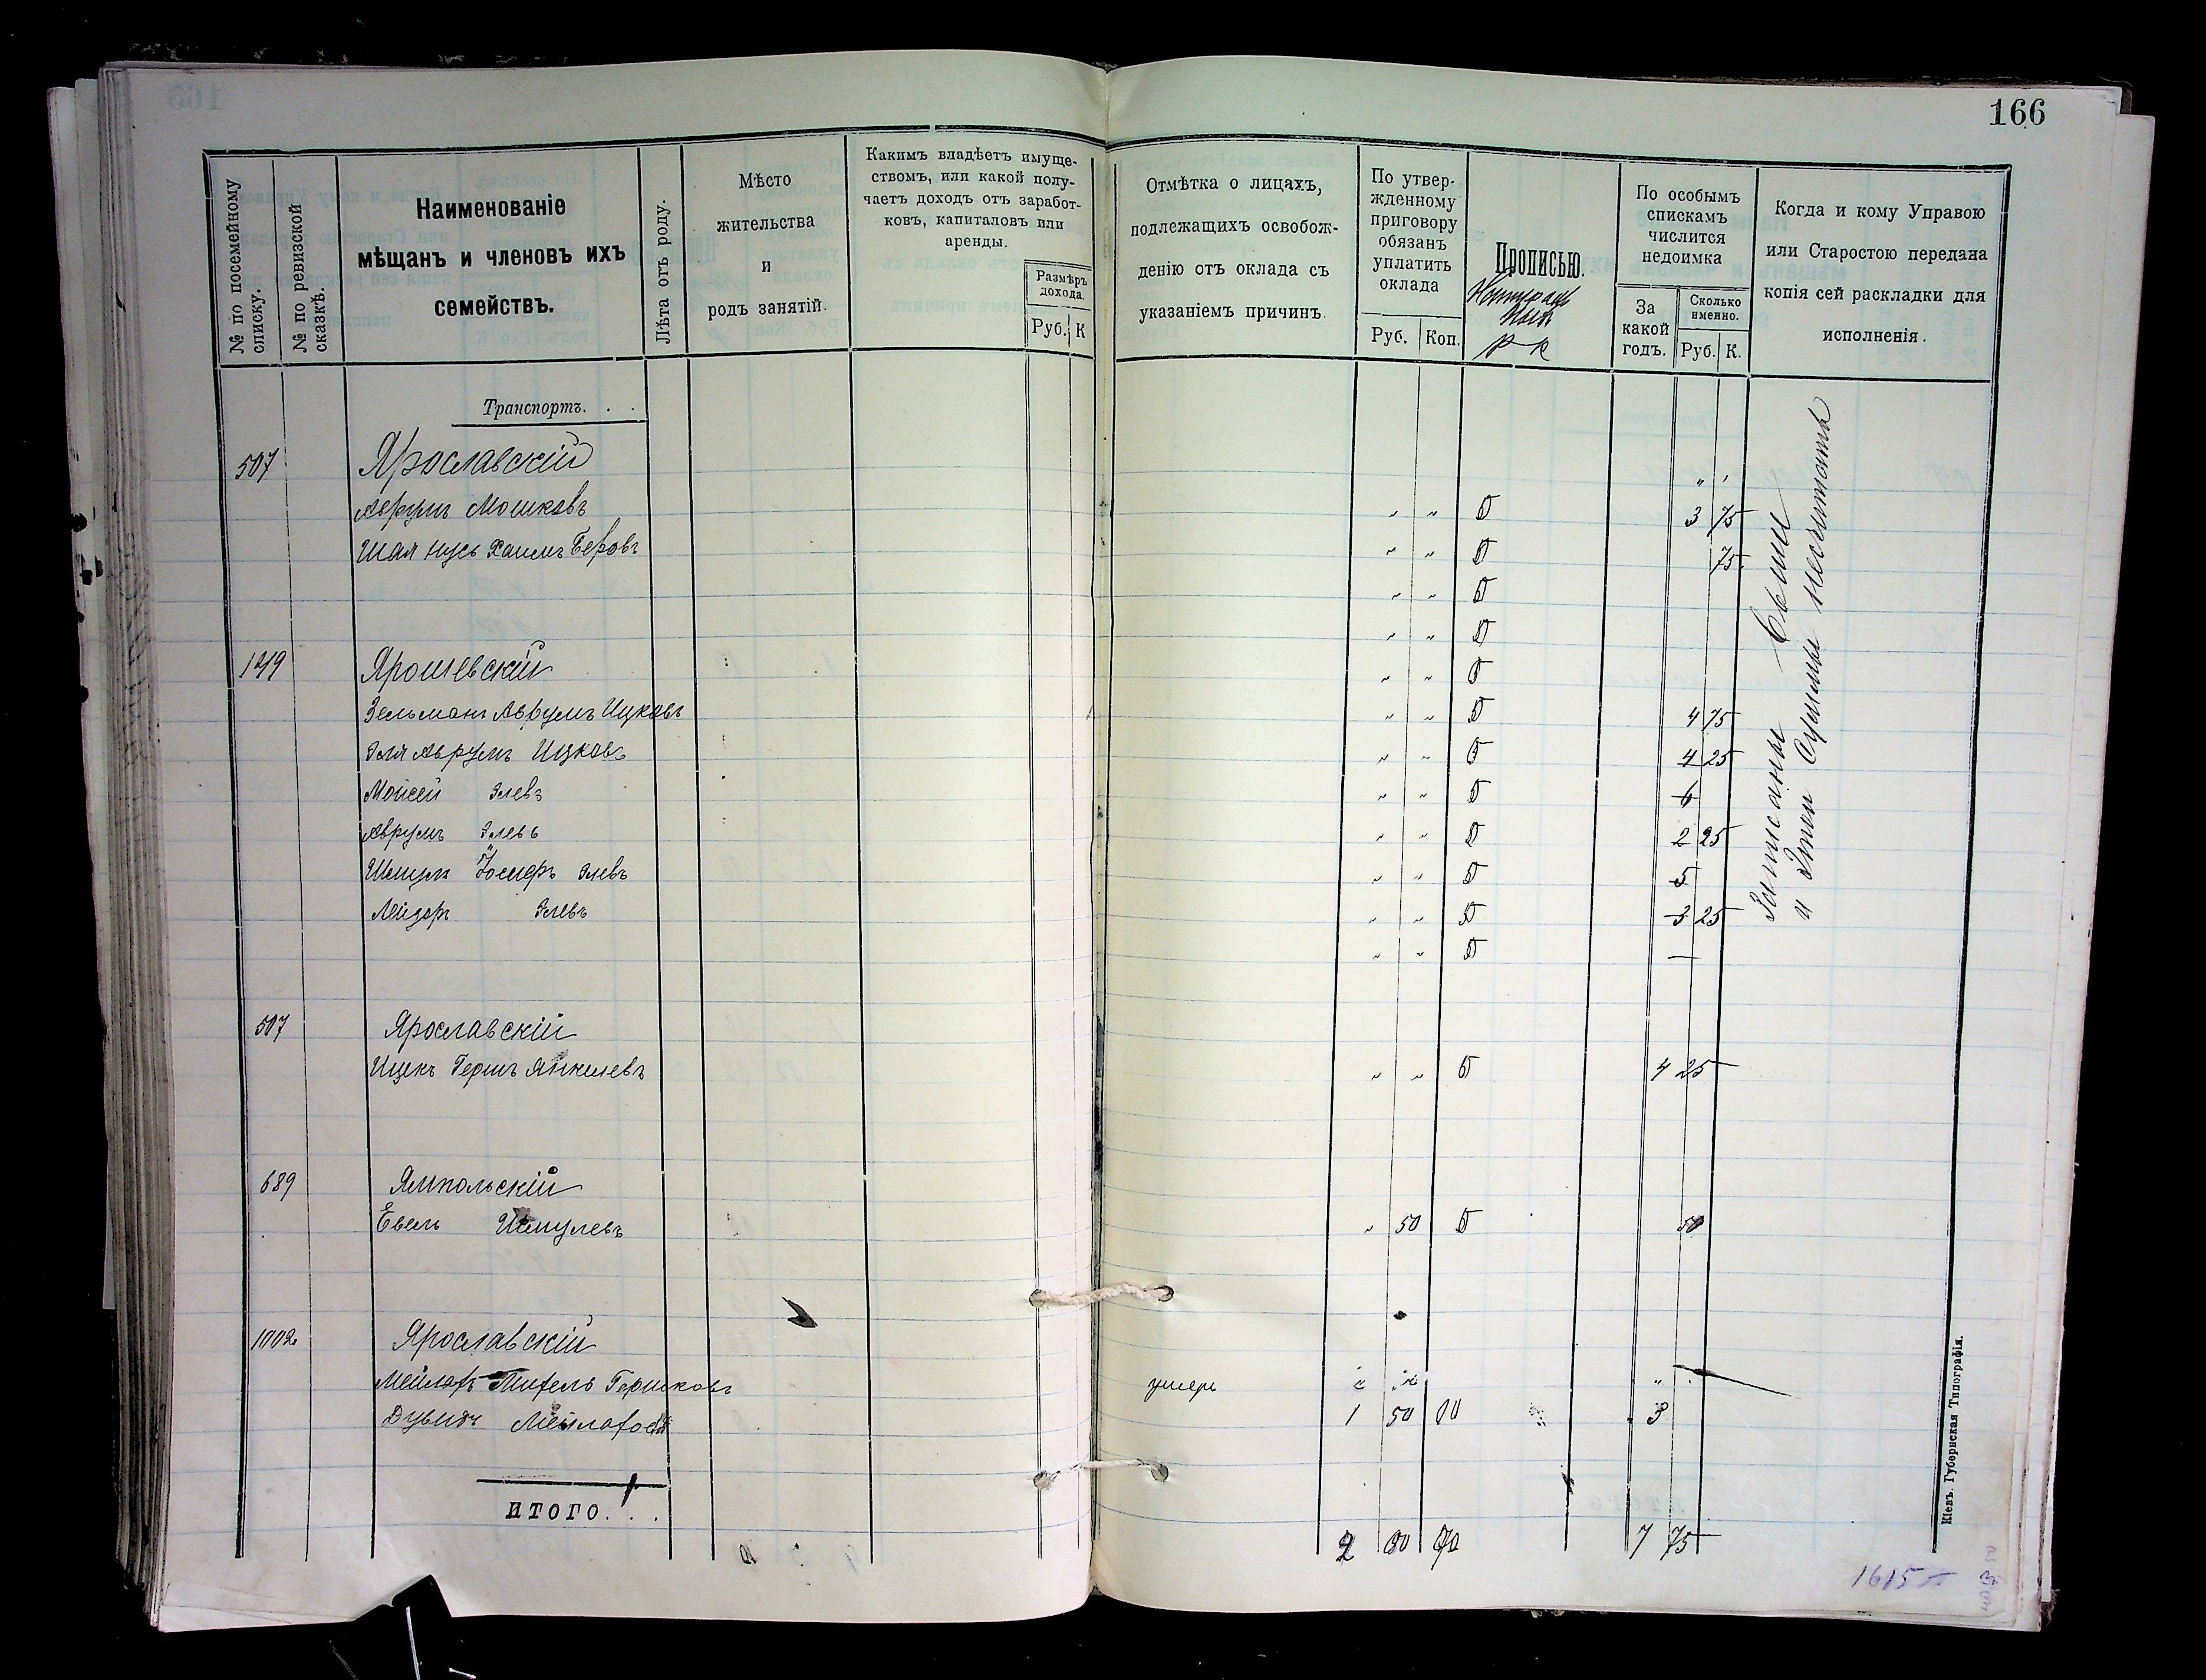 166
№ по посемейному списку.
№ по ревизской сказкѣ.
Наименованіе
мѣщанъ и членовъ ихъ
семействъ.
Лѣта отъ роду.
Мѣсто
жительства
и
родъ занятій.
Какимъ владѣетъ имуще-
ствомъ, или какой полу-
чаетъ доходъ отъ заработ-
ковъ, капиталовъ или
аренды.
Размѣръ
дохода.
Руб. К
Отмѣтка о лицахъ,
подлежащихъ освобож-
денію отъ оклада съ
указаніемъ причинъ.
По утвер-
жденному
приговору
обязанъ
уплатить
оклада
Руб. Коп.
Прописью.
Р К
По особымъ
спискамъ
числится
недоимка
За
какой
годъ.
Сколько
именно.
Руб. К.
Когда и кому Управою
или Старостою передана
копія сей раскладки для
исполненія.
Транспортъ. . .
507 Ярославскій
Аврумъ Мошковъ " " 3 75
Шая Нусь Хаимъ Беровъ " " 75
" "
" "
1219 Ярошевскій " "
Зельманъ Аврумъ Ицковъ " " 4 75
Эля Аврумъ Ицковъ " " 4 25
Мойсей Элевъ " " 6
Аврумъ Элевъ " " 2 25
Шмуль Іосифъ Элевъ " " 5
Лейзоръ Элевъ " " 3 25
" " —
Записаны Выше
и Эти Суммы несчитать
507 Ярославскій
Ицекъ Гершъ Янкелевъ " " 4 25
689 Ямпольскій
Евель Шмулевъ " 50 50
1002 Ярославскій
Мейлахъ Михель Гершковъ умеръ
Дувидъ 1 50 3
ИТОГО. . .
2 7 75
1615
Кіевъ. Губернская Типографія.